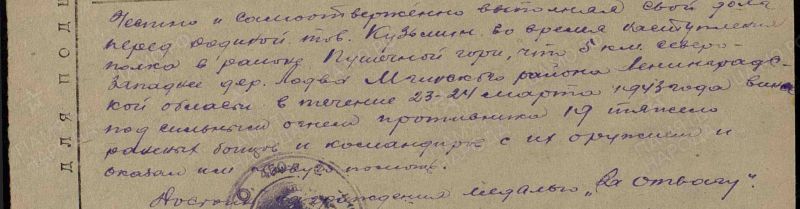 Честно и самоотверженно выполняя свой долг
перед родиной тов. Кузьмин во время наступления
полка в районе Пушечной горы, что 5 км. северо-
западнее дер. Лодва Мгинского района Ленинградс-
кой области в течение 23-24 марта 1943 года вынес
под сильным огнем противника 19 тяжело
раненых бойцов и командиров с их оружием и
оказал им первую помощь.
Достоин награждения медалью „За отвагу".
ДЛЯ ПОД